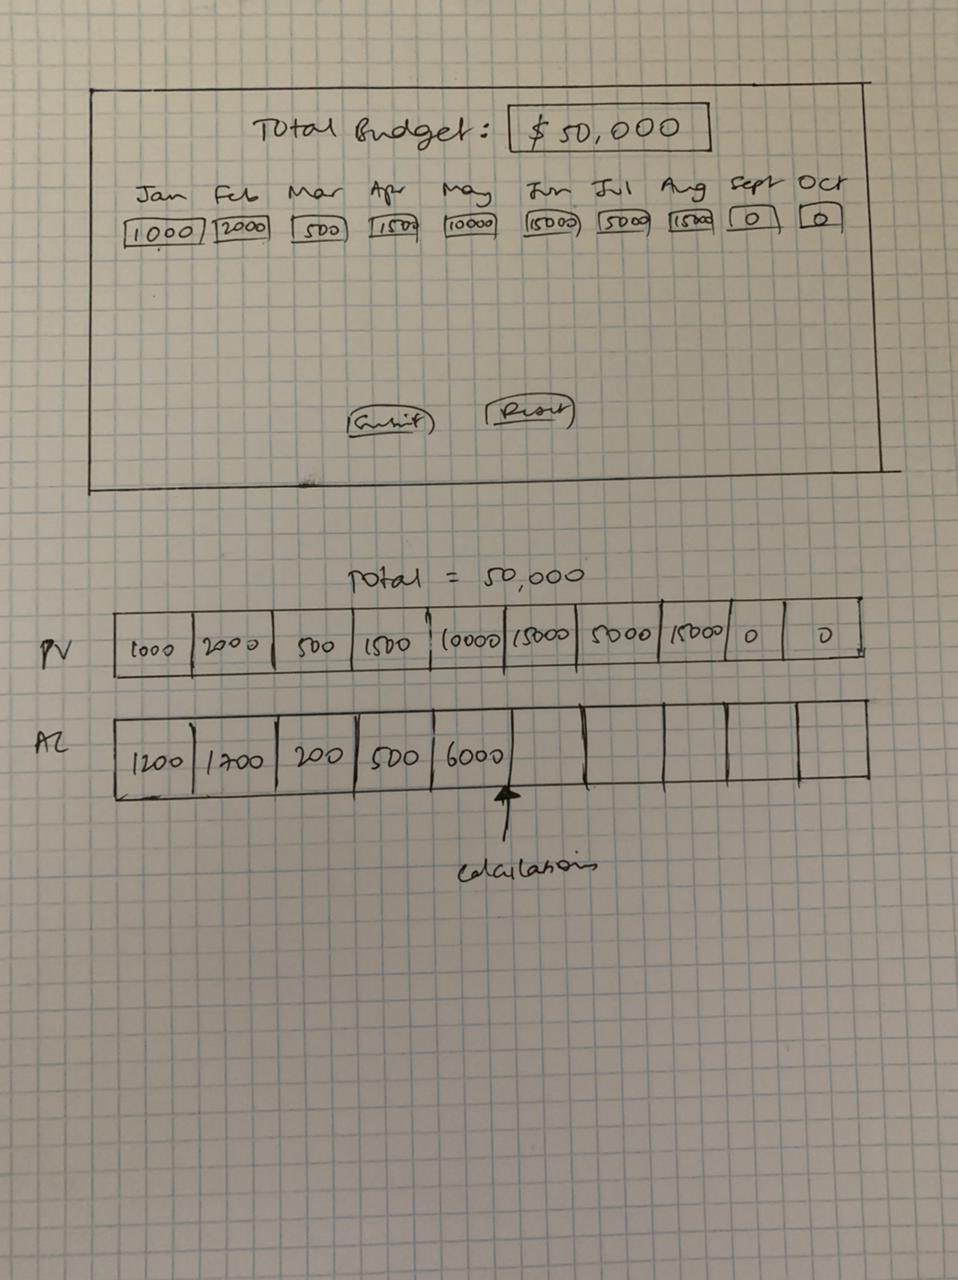 Total Budget: $ 50,000
Jan Feb Mar Apr May Jun Jul Aug Sept Oct
1000 2000 500 1500 10000 15000 5000 15000 0 0
Submit Reset
Total = 50,000
PV 1000 2000 500 1500 10000 15000 5000 15000 0 0
AC 1200 1700 200 500 6000
calculations